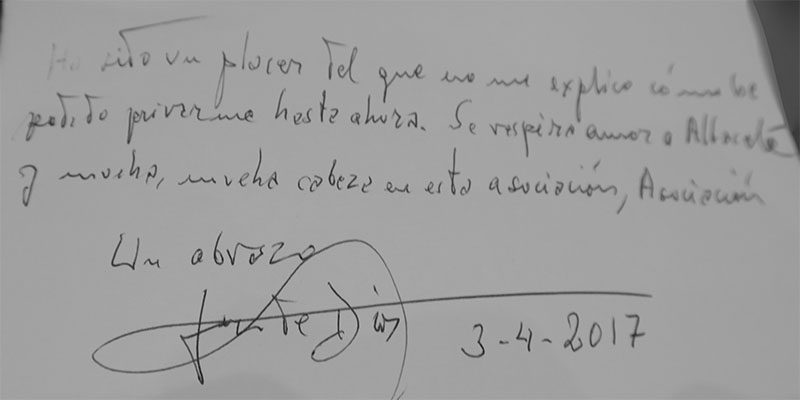 Ha sido un placer tel que no me explico cómo he
podido privarme hasta ahora. Se respira amor a Albacete
y mucha, mucha cabeza en esta asociación, Asociación
Un abrazo
de Dios
3-4-2017